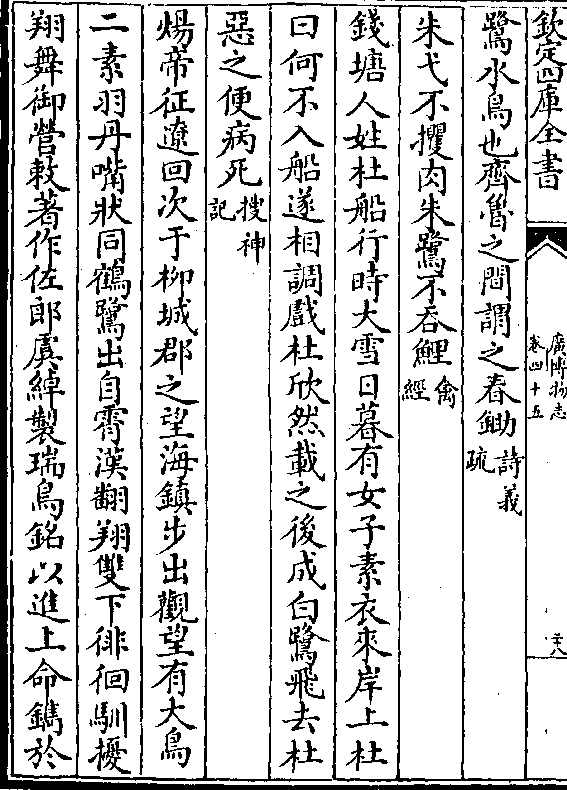 欽定四庫全書
廣博物志
卷四十五
二八
鷺水鳥也齊魯之間謂之舂鋤詩義
疏
朱弋不攫肉朱鷺不吞鯉禽
經
錢塘人姓杜船行時大雪日暮有女子素衣來岸上杜
曰何不入船遂相調戲杜欣然載之後成白鷺飛去杜
惡之便病死搜神
記
煬帝征遼回次于柳城郡之望海鎮步出觀望有大鳥
二素羽丹嘴狀同鶴鷺出自霄漢翻翔雙下徘徊馴擾
翔舞御營敕著作佐郎虞綽製瑞鳥銘以進上命鐫於